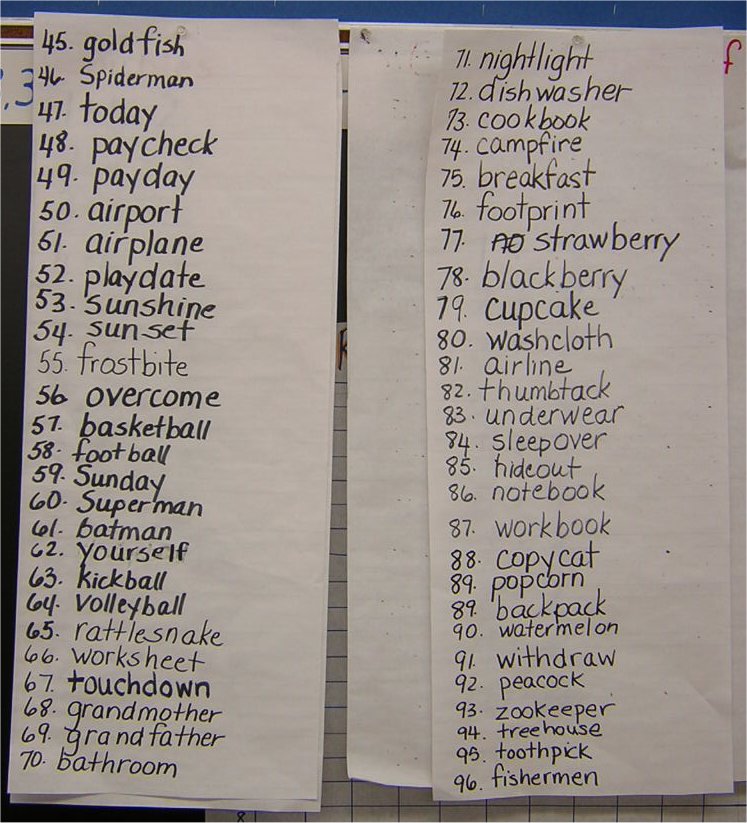 45. goldfish
46. Spiderman
47. today
48. paycheck
49. payday
50. airport
51. airplane
52. playdate
53. Sunshine
54. sunset
55. frostbite
56 overcome
57. basketball
58. football
59. Sunday
60. Superman
61. batman
62. yourself
63. kickball
64. volleyball
65. rattlesnake
66. worksheet
67. touchdown
68. grandmother
69. grandfather
70. bathroom
71. nightlight
72. dishwasher
73. cookbook
74. campfire
75. breakfast
76. footprint
77. strawberry
78. blackberry
79. cupcake
80. washcloth
81. airline
82. thumbtack
83. underwear
84. sleepover
85. hideout
86. notebook
87. workbook
88. copycat
89. popcorn
89. backpack
90. watermelon
91. withdraw
92. peacock
93. zookeeper
94. treehouse
95. toothpick
96. fishermen
f
.3
8